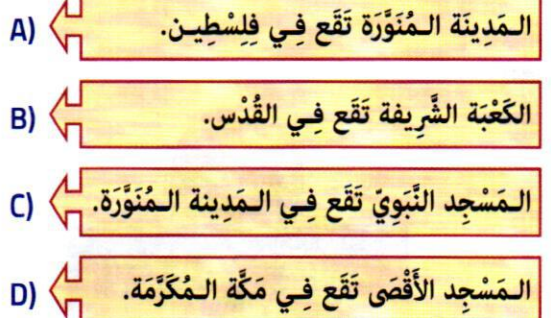 A) الـمَدِينَة الـمُنَوَّرَة تَقَع فِـي فِلِسْطِيـن.
B) الكَعْبَة الشَّرِيفة تَقَع فِـي القُدْس.
C) الـمَسْجِد النَّبَوِيّ تَقَع فِـي الـمَدِينة الـمُنَوَّرَة.
D) الـمَسْجِد الأَقْصَى تَقَع فِـي مَكَّة الـمُكَرَّمَة.